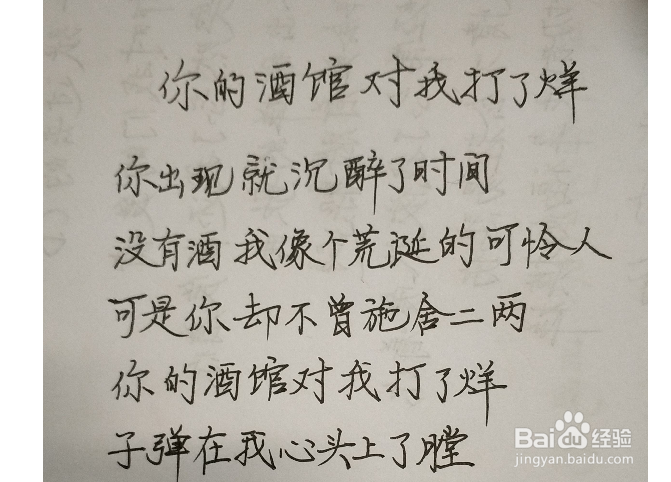 你的酒馆对我打了烊
你出现就沉醉了时间
没有酒我像个荒诞的可怜人
可是你却不曾施舍二两
你的酒馆对我打了烊
子弹在我心头上了膛
Baidu经验
jingyan.baidu.com